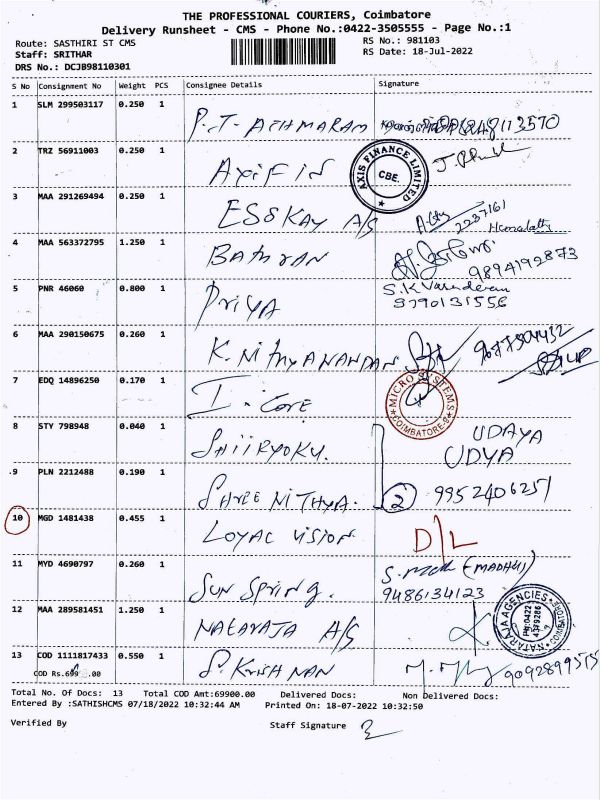 THE PROFESSIONAL COURIERS, Coimbatore
Delivery Runsheet - CMS - Phone No.:0422-3505555 - Page No.:1
Route: SASTHIRI ST CMS RS No.: 981103
Staff: SRITHAR RS Date: 18-Jul-2022
DRS No.: DCJB98110301
S No Consignment No Weight PCS Consignee Details Signature
1 SLM 299503117 0.250 1 P.T. ATHMARAM
2 TRZ 56911003 0.250 1 AXIFIN AXIS FINANCE LIMITED CBE.
3 MAA 291269494 0.250 1 ESSKAY A/S 2237161
4 MAA 563372795 1.250 1 BATHRAN 9894192873
5 PNR 46060 0.800 1 PRIYA S.K Varadharan 9790131556
6 MAA 290150675 0.260 1 K. NITHYANANDAN
7 EDQ 14896250 0.170 1 I. CORE MICRO SYSTEMS COIMBATORE-9
8 STY 798948 0.040 1 SHIIRYOKU. UDAYA
UDYA
9 PLN 2212488 0.190 1 SHREE NITHYA. 2 9952406251
10 MGD 1481438 0.455 1 LOYAL VISION D/L
11 MYD 4690797 0.260 1 SUN SPRING. (MADHU)
9486134123
12 MAA 289581451 1.250 1 NATARAJA A/S NATARAJA AGENCIES COIMBATORE
13 COD 1111817433 0.550 1 S. KRISHNAN 9092899515
COD Rs.69900.00
Total No. Of Docs: 13 Total COD Amt:69900.00 Delivered Docs: Non Delivered Docs:
Entered By :SATHISHCMS 07/18/2022 10:32:44 AM Printed On: 18-07-2022 10:32:50
Verified By Staff Signature